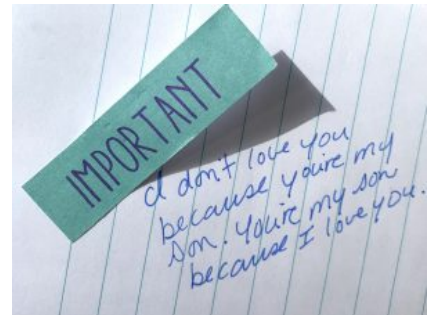 IMPORTANT
I don't love you
because you're my
son. You're my son
because I love you.